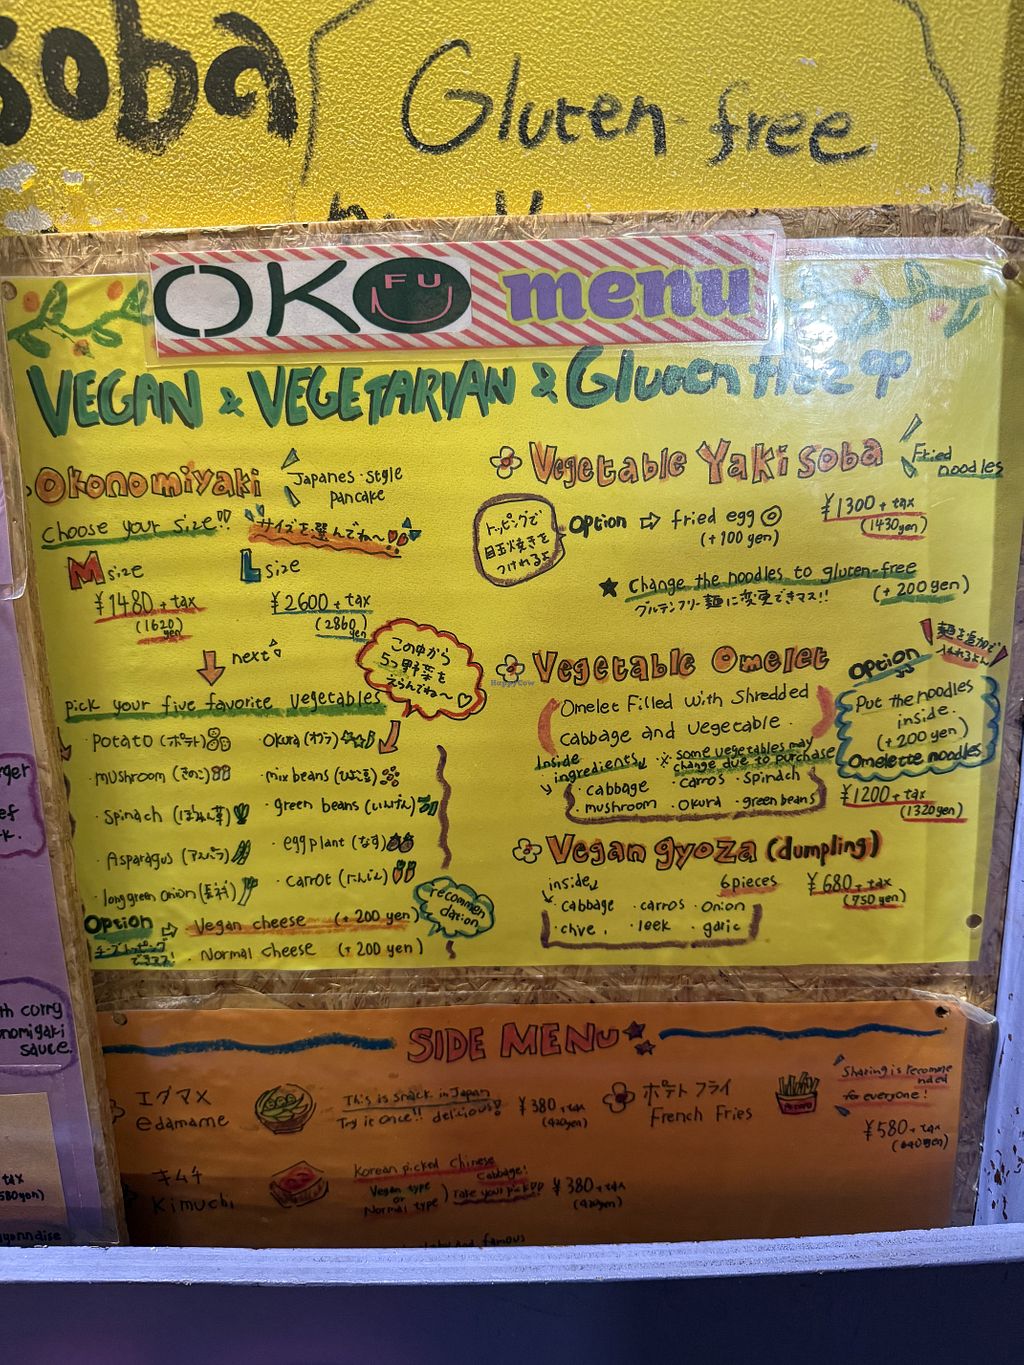 soba
Gluten-free
OKO
FU
menu
VEGAN & VEGETARIAN & Gluten free
Okonomiyaki
Japanes-style
pancake
choose your size!!
サイズを選んでね〜
M size
¥1480+tax
(1620
yen)
L size
¥2600+tax
(2860
yen)
next
この中から
5つ野菜を
えらんでね〜♡
pick your five favorite vegetables
・potato (ポテト)
・okura (オクラ)
・mushroom (きのこ)
・mix beans (ひよこ豆)
・Spinach (ほうれん草)
・green beans (いんげん)
・Asparagus (アスパラ)
・eggplant (なす)
・long green onion (長ネギ)
・carrot (にんじん)
Option ⇨ Vegan cheese (+200 yen)
recommen
dation
チーズトッピング
できマス!
・Normal cheese (+200 yen)
Vegetable Yaki soba
Fried
noodles
トッピングで
目玉焼きを
つけれるよ
option ⇨ fried egg
(+100 yen)
¥1300+tax
(1430yen)
★ Change the noodles to gluten-free
グルテンフリー麺に変更できマス!!
(+200 yen)
Vegetable Omelet
Omelet Filled with Shredded
cabbage and vegetable.
Inside
ingredients
※ some vegetables may
change due to purchase
・cabbage ・carros ・spinach
・mushroom ・okura ・green beans
option
麺を追加で
いれれるよん
Put the noodles
inside.
(+200 yen)
Omelette noodles
¥1200+tax
(1320yen)
Vegan gyoza (dumpling)
inside
6pieces
¥680+tax
(750 yen)
・cabbage ・carros ・onion
・chive. ・leek ・garlic
SIDE MENU
エダマメ
edamame
This is snack in Japan
Try it once!! delicious!
¥380+tax
(420yen)
ポテトフライ
French Fries
Sharing is recomme
nded
for everyone!
¥580+tax
(640yen)
キムチ
Kimuchi
Korean picked Chinese
cabbage!
Vegan type
or
Normal type
) Take your pick
¥380+tax
(420yen)
and famous
th curry
nomiyaki
sauce.
HappyCow